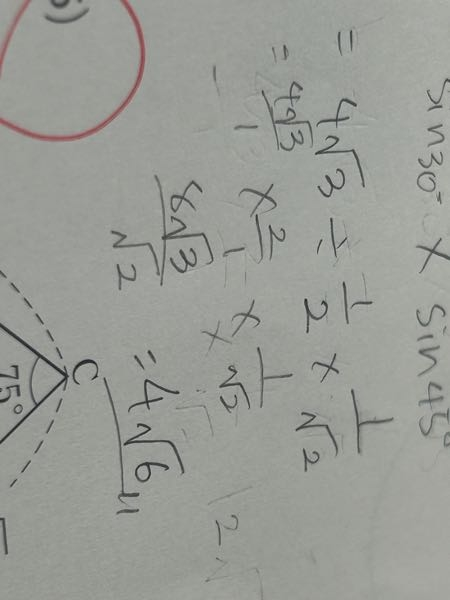 sin30° × sin45°
= 4√3 ÷ 1/2 × 1/√2
= 4√3/1 × 2/1 × 1/√2
8√3/√2 = 4√6
C
75°